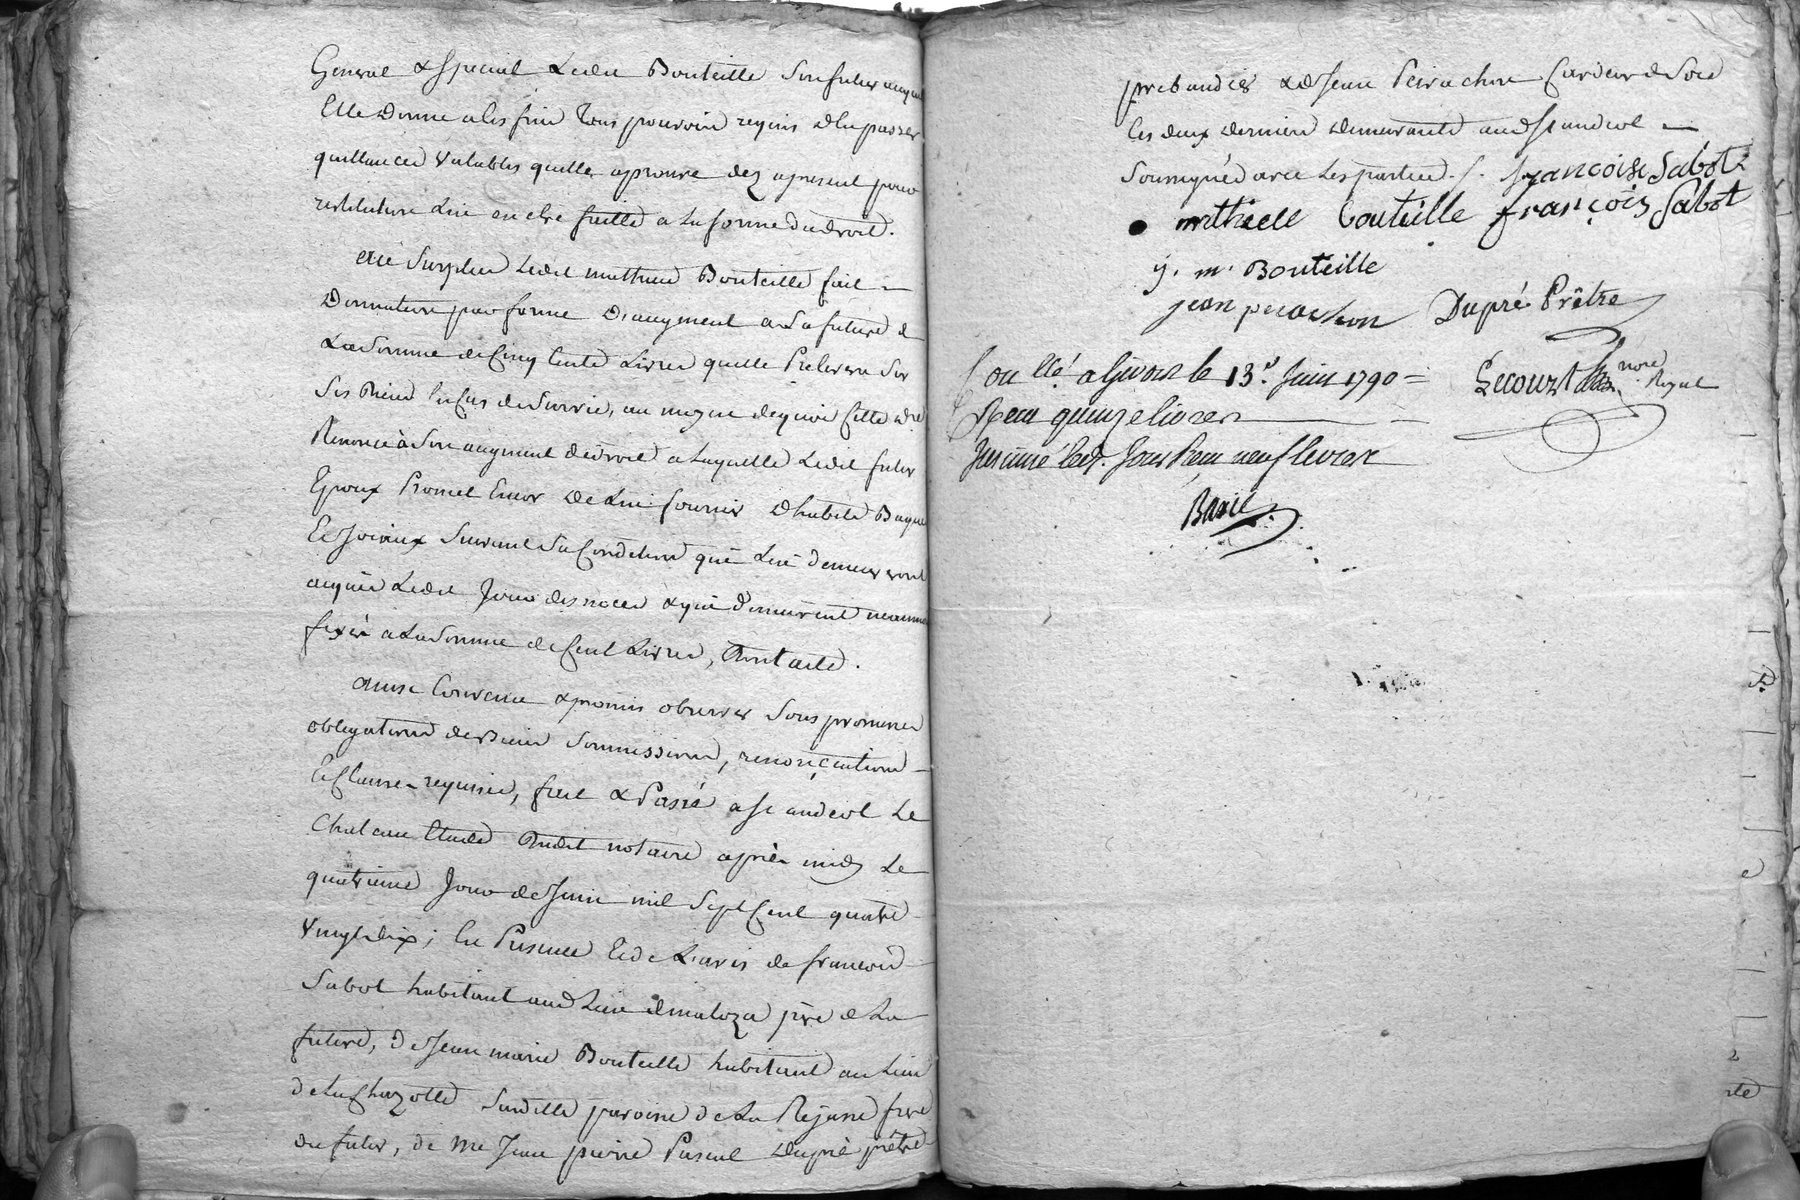 General & special ledit Bouteille son futur auquel
Elle donne a les fins tous pouvoirs requis d'en passer
quittances valables quelle aprouve dez apresent pour
restitution lui en etre faitte a la forme du droit.
au surplus ledit mathieu Bouteille fait
Donnation par forme d'augment a sa future de
La somme de Cinq Cents Livres quelle Prelevera sur
ses Biens En Cas de survie, au moyen dequoi Cette dre
Renonce à son augment de droit a laquelle ledit futur
Epoux Promet Encor de lui fournir d'habits Bagues
Et Joiaux suivant sa Condition qui lui demeureront
acquis ledit Jour des noces & qui demeurent neanmoins
fixés a la somme de Cent Livres, dont acte.
ainsi Convenu & promis observer sous promesses
obligations de Biens soumissions, renonçiations
Et Clauses requises, fait & Passé a st andeol Le
Chateau Etude dudit notaire après midy Le
quatrieme Jour de Juin mil sept Cent quatre
vingt dix; En Presence Et de L'avis de francois
Sabot habitant aud Lieu de maloza père de La
future, de Jean marie Bouteille habitant au Lieu
de La Chazotte susditte paroisse de La Rejasse frere
du futur, de me Jean pierre Pascal Dupré prêtre
prebandier & de Jean Peirachon Cardeur de Soie
les deux derniers demeurants aud st andeol
Soussignés avec les parties. françoise Sabot
mathieu bouteille françois Sabot
j. m. Bouteille
jean perachon Dupré Prêtre
Con llé a Givors le 13e. Juin 1790 = Lecourt nore Royal
Reçu quinze livres
Insinué led. Jour Reçu neuf livres
Basile